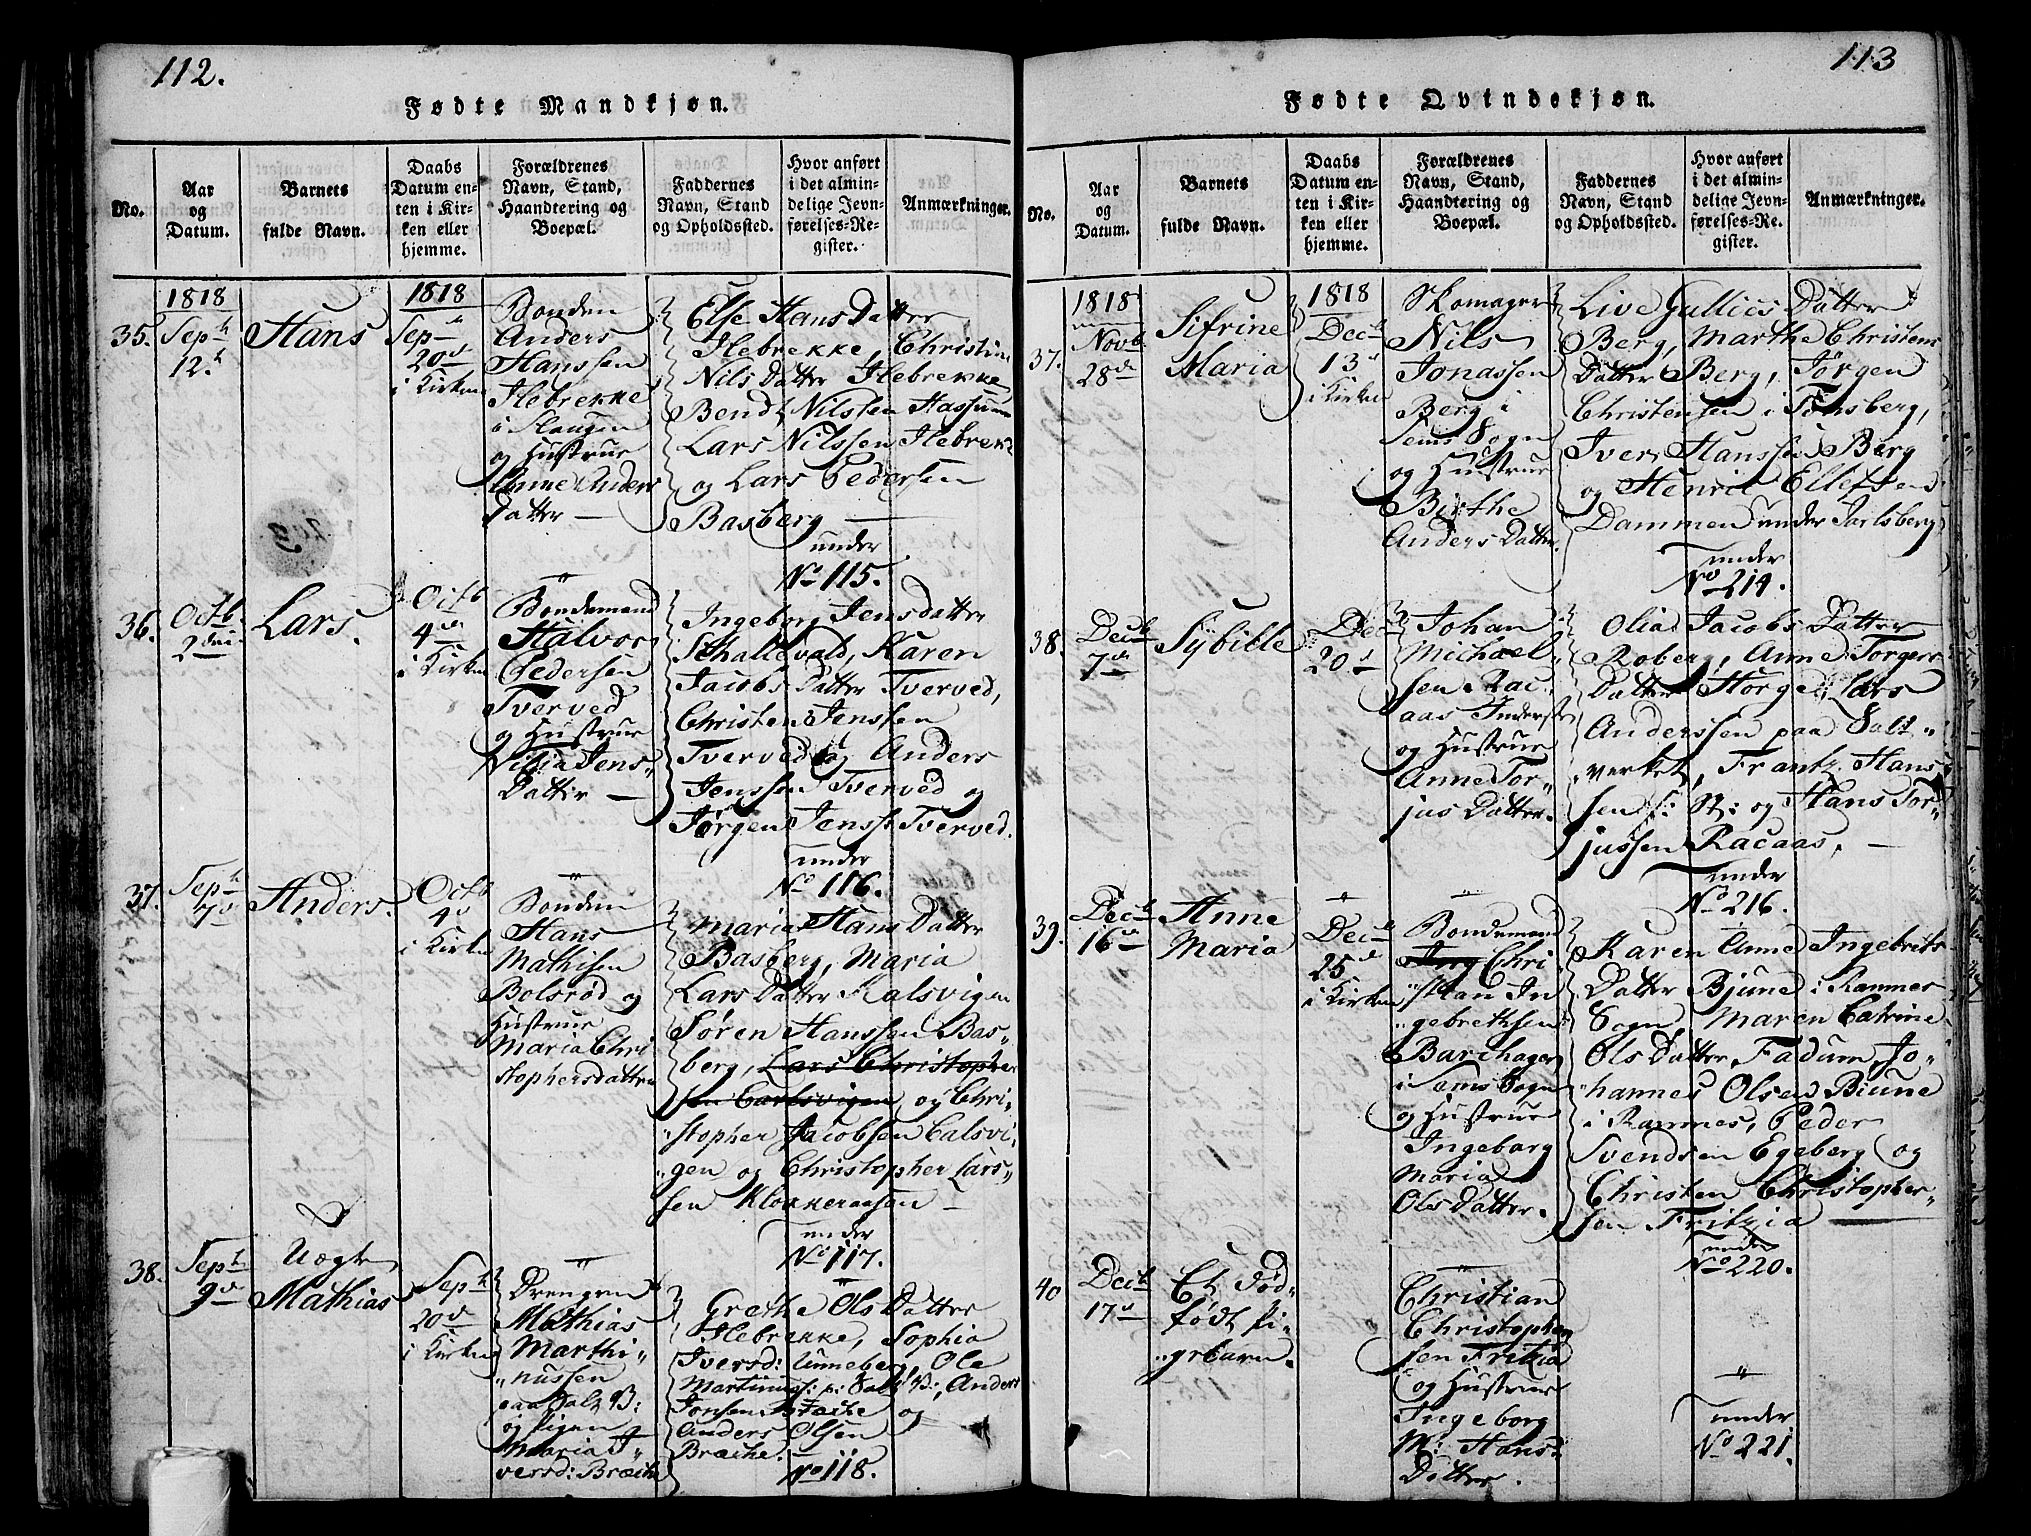 112.
Fødte Mandkjøn.
No.
Aar
og
Datum.
Barnets
fulde Navn.
Daabs
Datum en-
ten i Kir-
ken eller
hjemme.
Forældrenes
Navn, Stand,
Haandtering og
Boepæl.
Faddernes
Navn, Stand
og Opholdssted.
Hvor anført
i det almin-
delige Jevn-
førelses-Re-
gister.
Anmærkninger.
35.
1818
Sept
12.
Hans
1818
Sept
20
i Kirken
Bonden
Anders
Hanssen
Ilebrekke
i Slaugen
og Hustrue
Anne Anders
Datter —
Else Hans Datter
Ilebrekke, Christine
Nils Datter Ilebrekke
Bendt Nilssen Hassum
Lars Nilssen Ilebrek
og Lars Pedersen
Basberg —
under
No 115.
36.
Octb.
2
Lars.
Octb
4
i Kirken
Bondemand
Halvor
Pedersen
Tverved
og Hustrue
Jens
Datter —
Ingeborg Jensdatter
Schallevald, Karen
Jacobs Datter Tverved,
Christen Jenssen
Tverved og Anders
Jenssen Tverved og
Jørgen Jenss: Tverved.
under
No 116.
37.
Sept
7
Anders.
Octb
4
i Kirken
Bonden
Hans
Mathisen
Bolsrød og
Hustrue
Maria Chri
stophersdatter
Maria Hans Datter
Basberg, Maria
Lars Datter Kalsvigen
Søren Hanssen Bas-
berg, Lars Christopher
sen Carlsvigen og Chri-
stopher Jacobsen Calsvi-
gen og Christopher Lars-
sen Klokkeraasen —
under
No 117.
38.
Sept
9
Uægte
Mathias
Sept
20
i Kirken
Drengen
Mathias
Marthi-
nussen
paa Salt V:
og Pigen
Maria I-
versd: Bræche
Grethe Ols Datter
Ilebrekke, Sophia
Iversd: Unneberg, Ole
Martinus: p: Salt V:, Anders
Jonsen Bræche og
Anders Olsen
Bræche.
No 118.
113
Fødte Qvindekjøn.
No.
Aar
og
Datum.
Barnets
fulde Navn.
Daabs
Datum en-
ten i Kir-
ken eller
hjemme.
Forældrenes
Navn, Stand,
Haandtering og
Boepæl.
Faddernes
Navn, Stand
og Opholdssted.
Hvor anført
i det almin-
delige Jevn-
førelses-Re-
gister.
Anmærkninger.
37.
1818
Novb
28
Sifrine
Maria
1818
Decb
13
i Kirken
Skomager
Nils
Jonassen
Berg i
Sems Sogn
og Hustrue
Birthe
Anders Datter.
Live Gullics Datter
Berg, Marthe Christens
Datter Berg, Jørgen
Christensen i Tønsberg,
Iver Hanssen Berg
og Henric Ellefsen
Dammen under Jarlsberg
under
No 214.
38.
Decb
7
Sÿbille
Dec
20
Johan
Michael-
sen Rac-
aas Inderste
og Hustrue
Anne Tor-
jus Datter.
Olia Jacobs Datter
Roberg, Anne Torgers
Datter Horge, Lars
Anderssen paa Salt-
verket, Frantz Hans-
sen s: St: og Hans Tor-
jussen Racaas, —
under
No 216.
39.
Decb
16
Anne
Maria
Decb
25
i Kirken
Bondemand
Chri-
stian In
gebrethsen
Barchager
i Sems Sogn
og Hustrue
Ingeborg
Maria
Ols Datter.
Karen Anne Ingebrits
Datter Bjune i Ramnes
Sogn, Maren Catrine
Ols Datter Fadum, Jo-
hannes Olsen Biune
i Ramnes, Peder
Svendsen Egeberg og
Christen Christopher-
sen Fritzia —
under
No 220.
40
Decb
17
Et Død-
født Pi-
gebarn.
Christian
Christopher
sen Fritzia
og Hustrue
Ingeborg
M: Hans
Datter.
under
No 221.